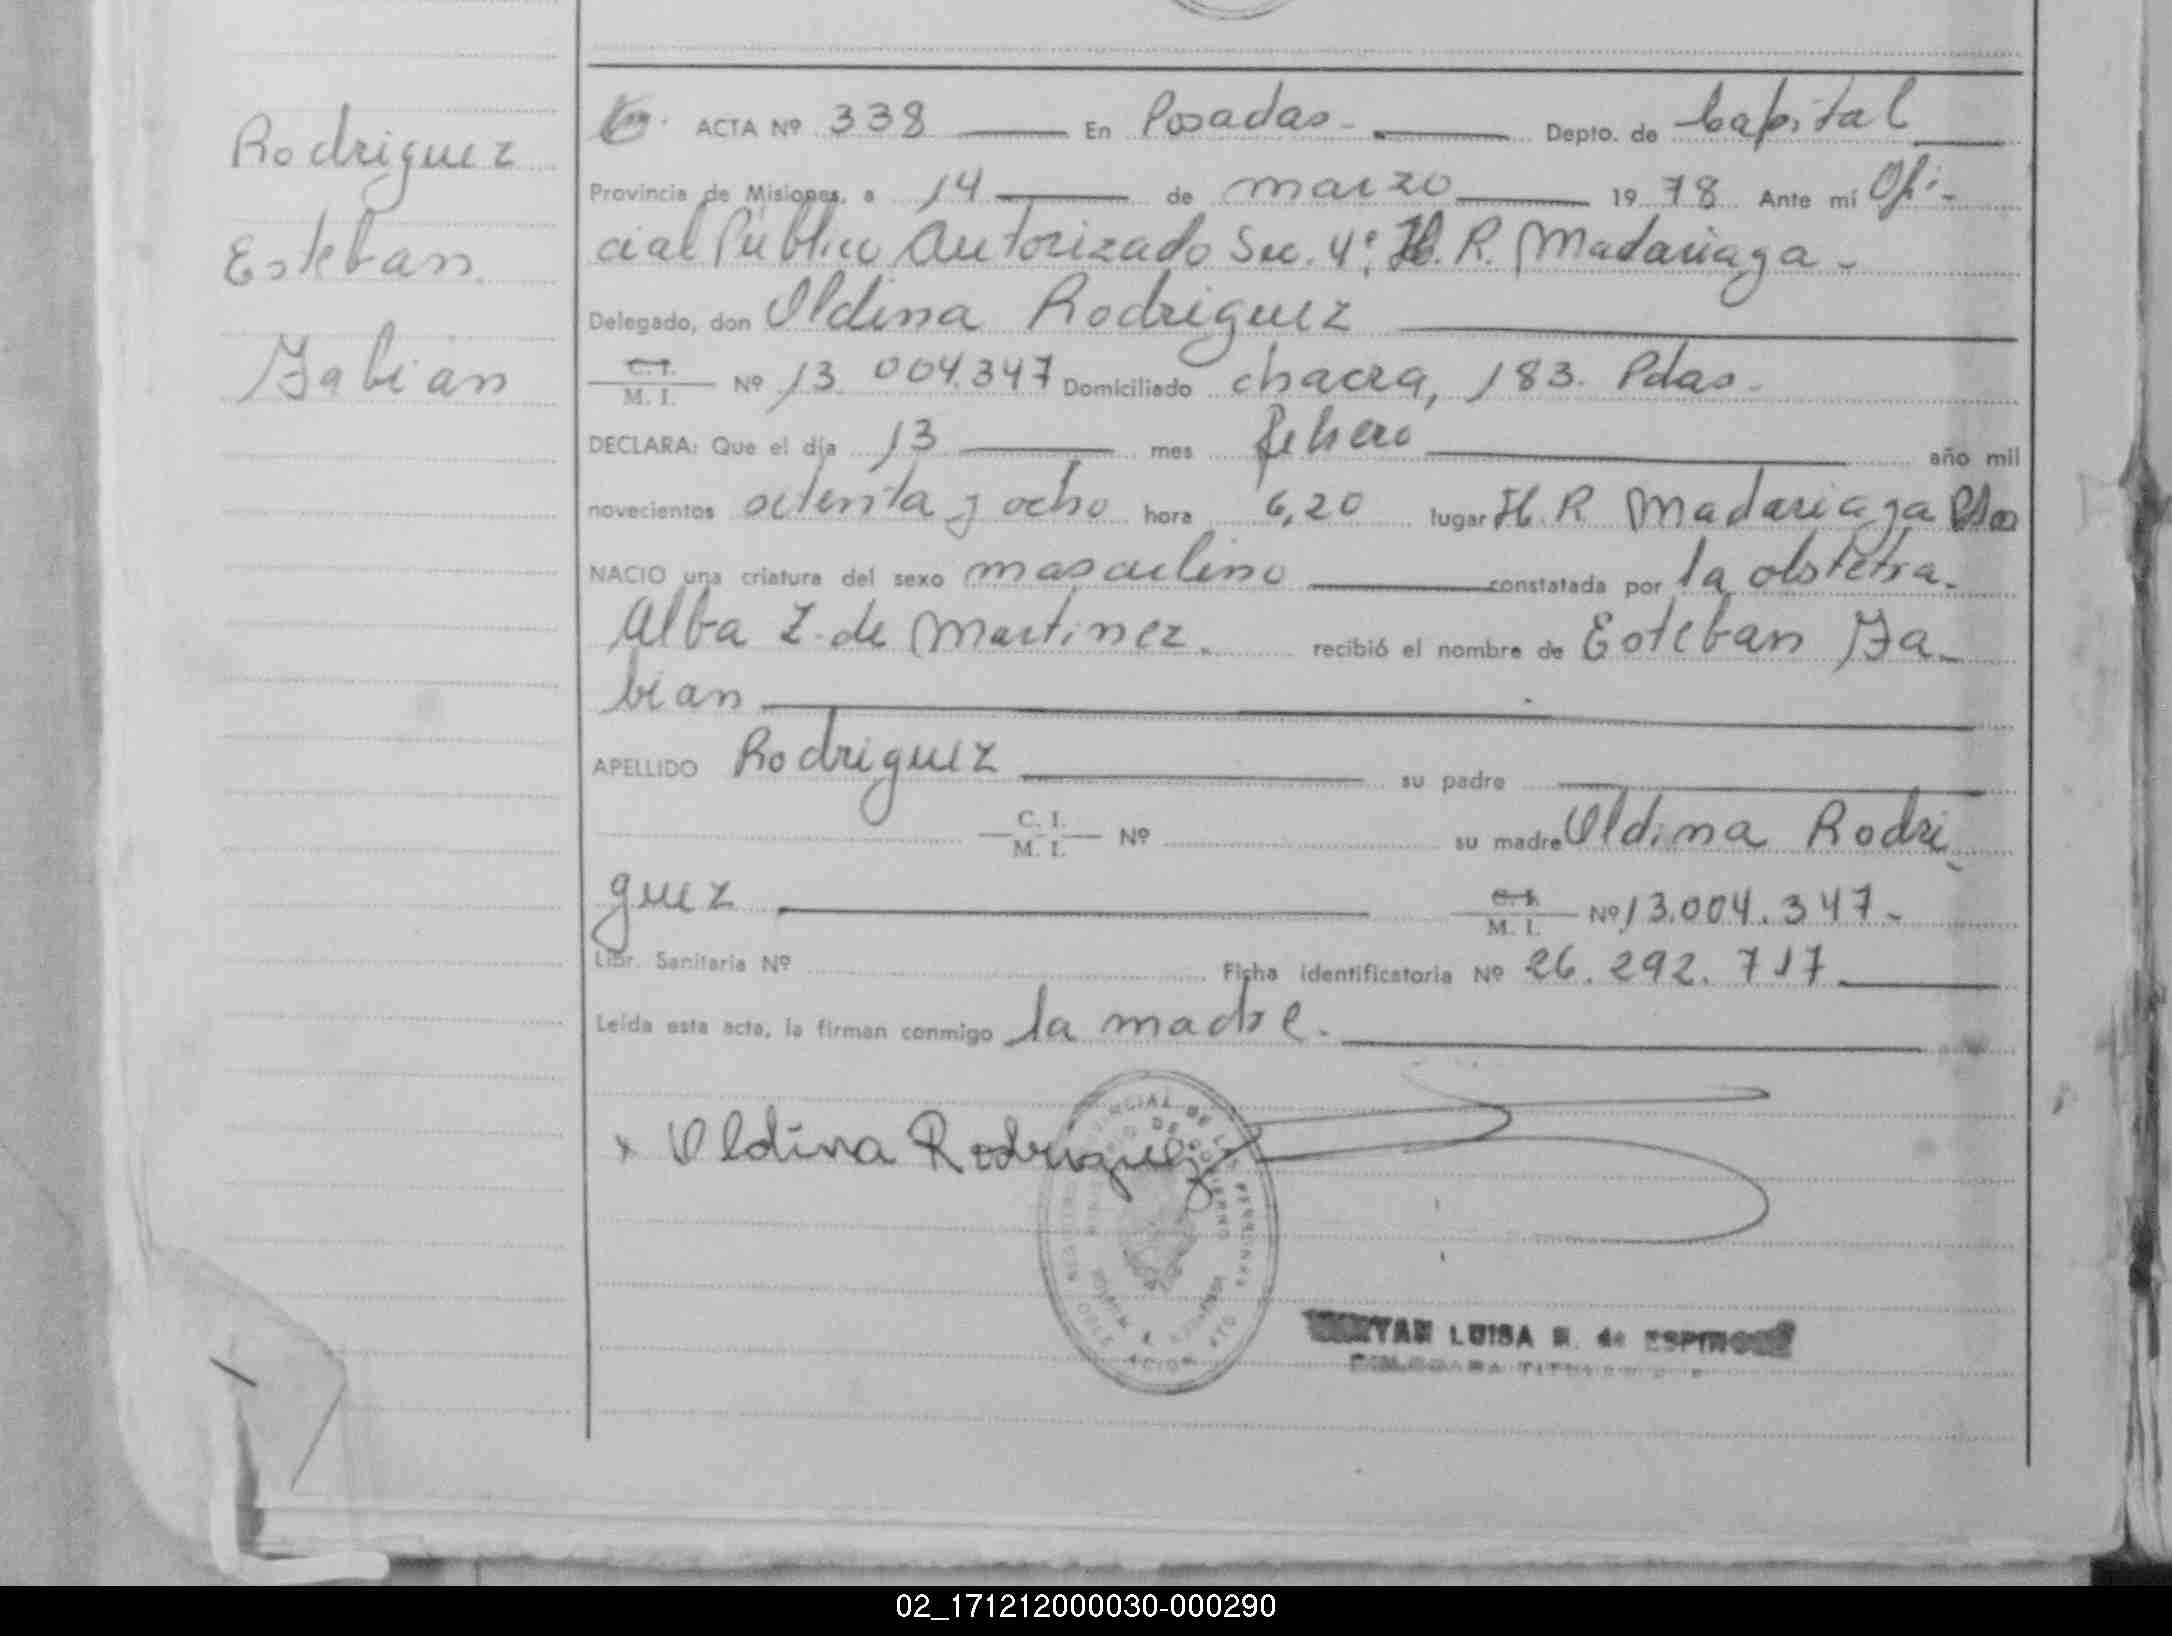 Rodriguez
Esteban
Fabian
ACTA Nº 338 En Posadas - Depto. de Capital
Provincia de Misiones, a 14 de marzo 1978 Ante mí Ofi-
cial Público Autorizado Sec. 4º H. R. Madariaga -
Delegado, don Oldina Rodriguez
C. I.
M. I. Nº 13.004.347 Domiciliado chacra, 183. Pdas -
DECLARA: Que el día 13 mes febrero año mil
novecientos setenta y ocho hora 6,20 lugar H. R Madariaga Pdas
NACIO una criatura del sexo masculino constatada por la obstetra -
Alba Z. de Martinez. recibió el nombre de Esteban Fa-
bian
APELLIDO Rodriguez su padre
C. I.
M. I. Nº su madre Oldina Rodri
guez C. I.
M. I. Nº 13.004.347 -
Libr. Sanitaria Nº Ficha identificatoria Nº 26.292.717
Leída esta acta, la firman conmigo la madre.
x Oldina Rodriguez
LUISA E. de ESPINOZA
02_171212000030-000290